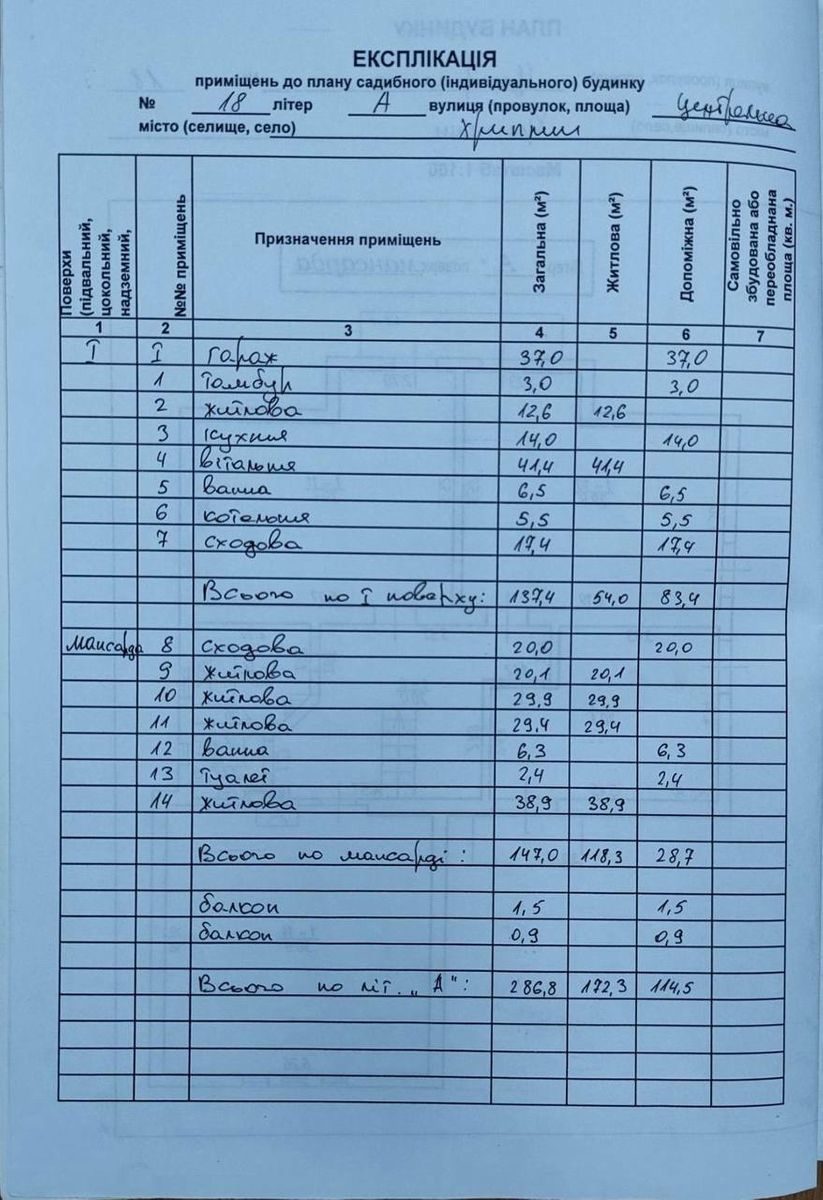 ЕКСПЛІКАЦІЯ
приміщень до плану садибного (індивідуального) будинку
№ 18 літер А вулиця (провулок, площа) Центральна
місто (селище, село) Хриплин
Поверхи (підвальний, цокольний, надземний,
№№ приміщень
Призначення приміщень
Загальна (м²)
Житлова (м²)
Допоміжна (м²)
Самовільно збудована або переобладнана площа (кв. м.)
1 2 3 4 5 6 7
І І Гараж 37,0 37,0
1 Тамбур 3,0 3,0
2 житлова 12,6 12,6
3 кухня 14,0 14,0
4 вітальня 41,4 41,4
5 ванна 6,5 6,5
6 котельня 5,5 5,5
7 сходова 17,4 17,4
Всього по І поверху: 137,4 54,0 83,4
мансарда 8 сходова 20,0 20,0
9 житлова 20,1 20,1
10 житлова 29,9 29,9
11 житлова 29,4 29,4
12 ванна 6,3 6,3
13 туалет 2,4 2,4
14 житлова 38,9 38,9
Всього по мансарді: 147,0 118,3 28,7
балкон 1,5 1,5
балкон 0,9 0,9
Всього по літ. „А": 286,8 172,3 114,5